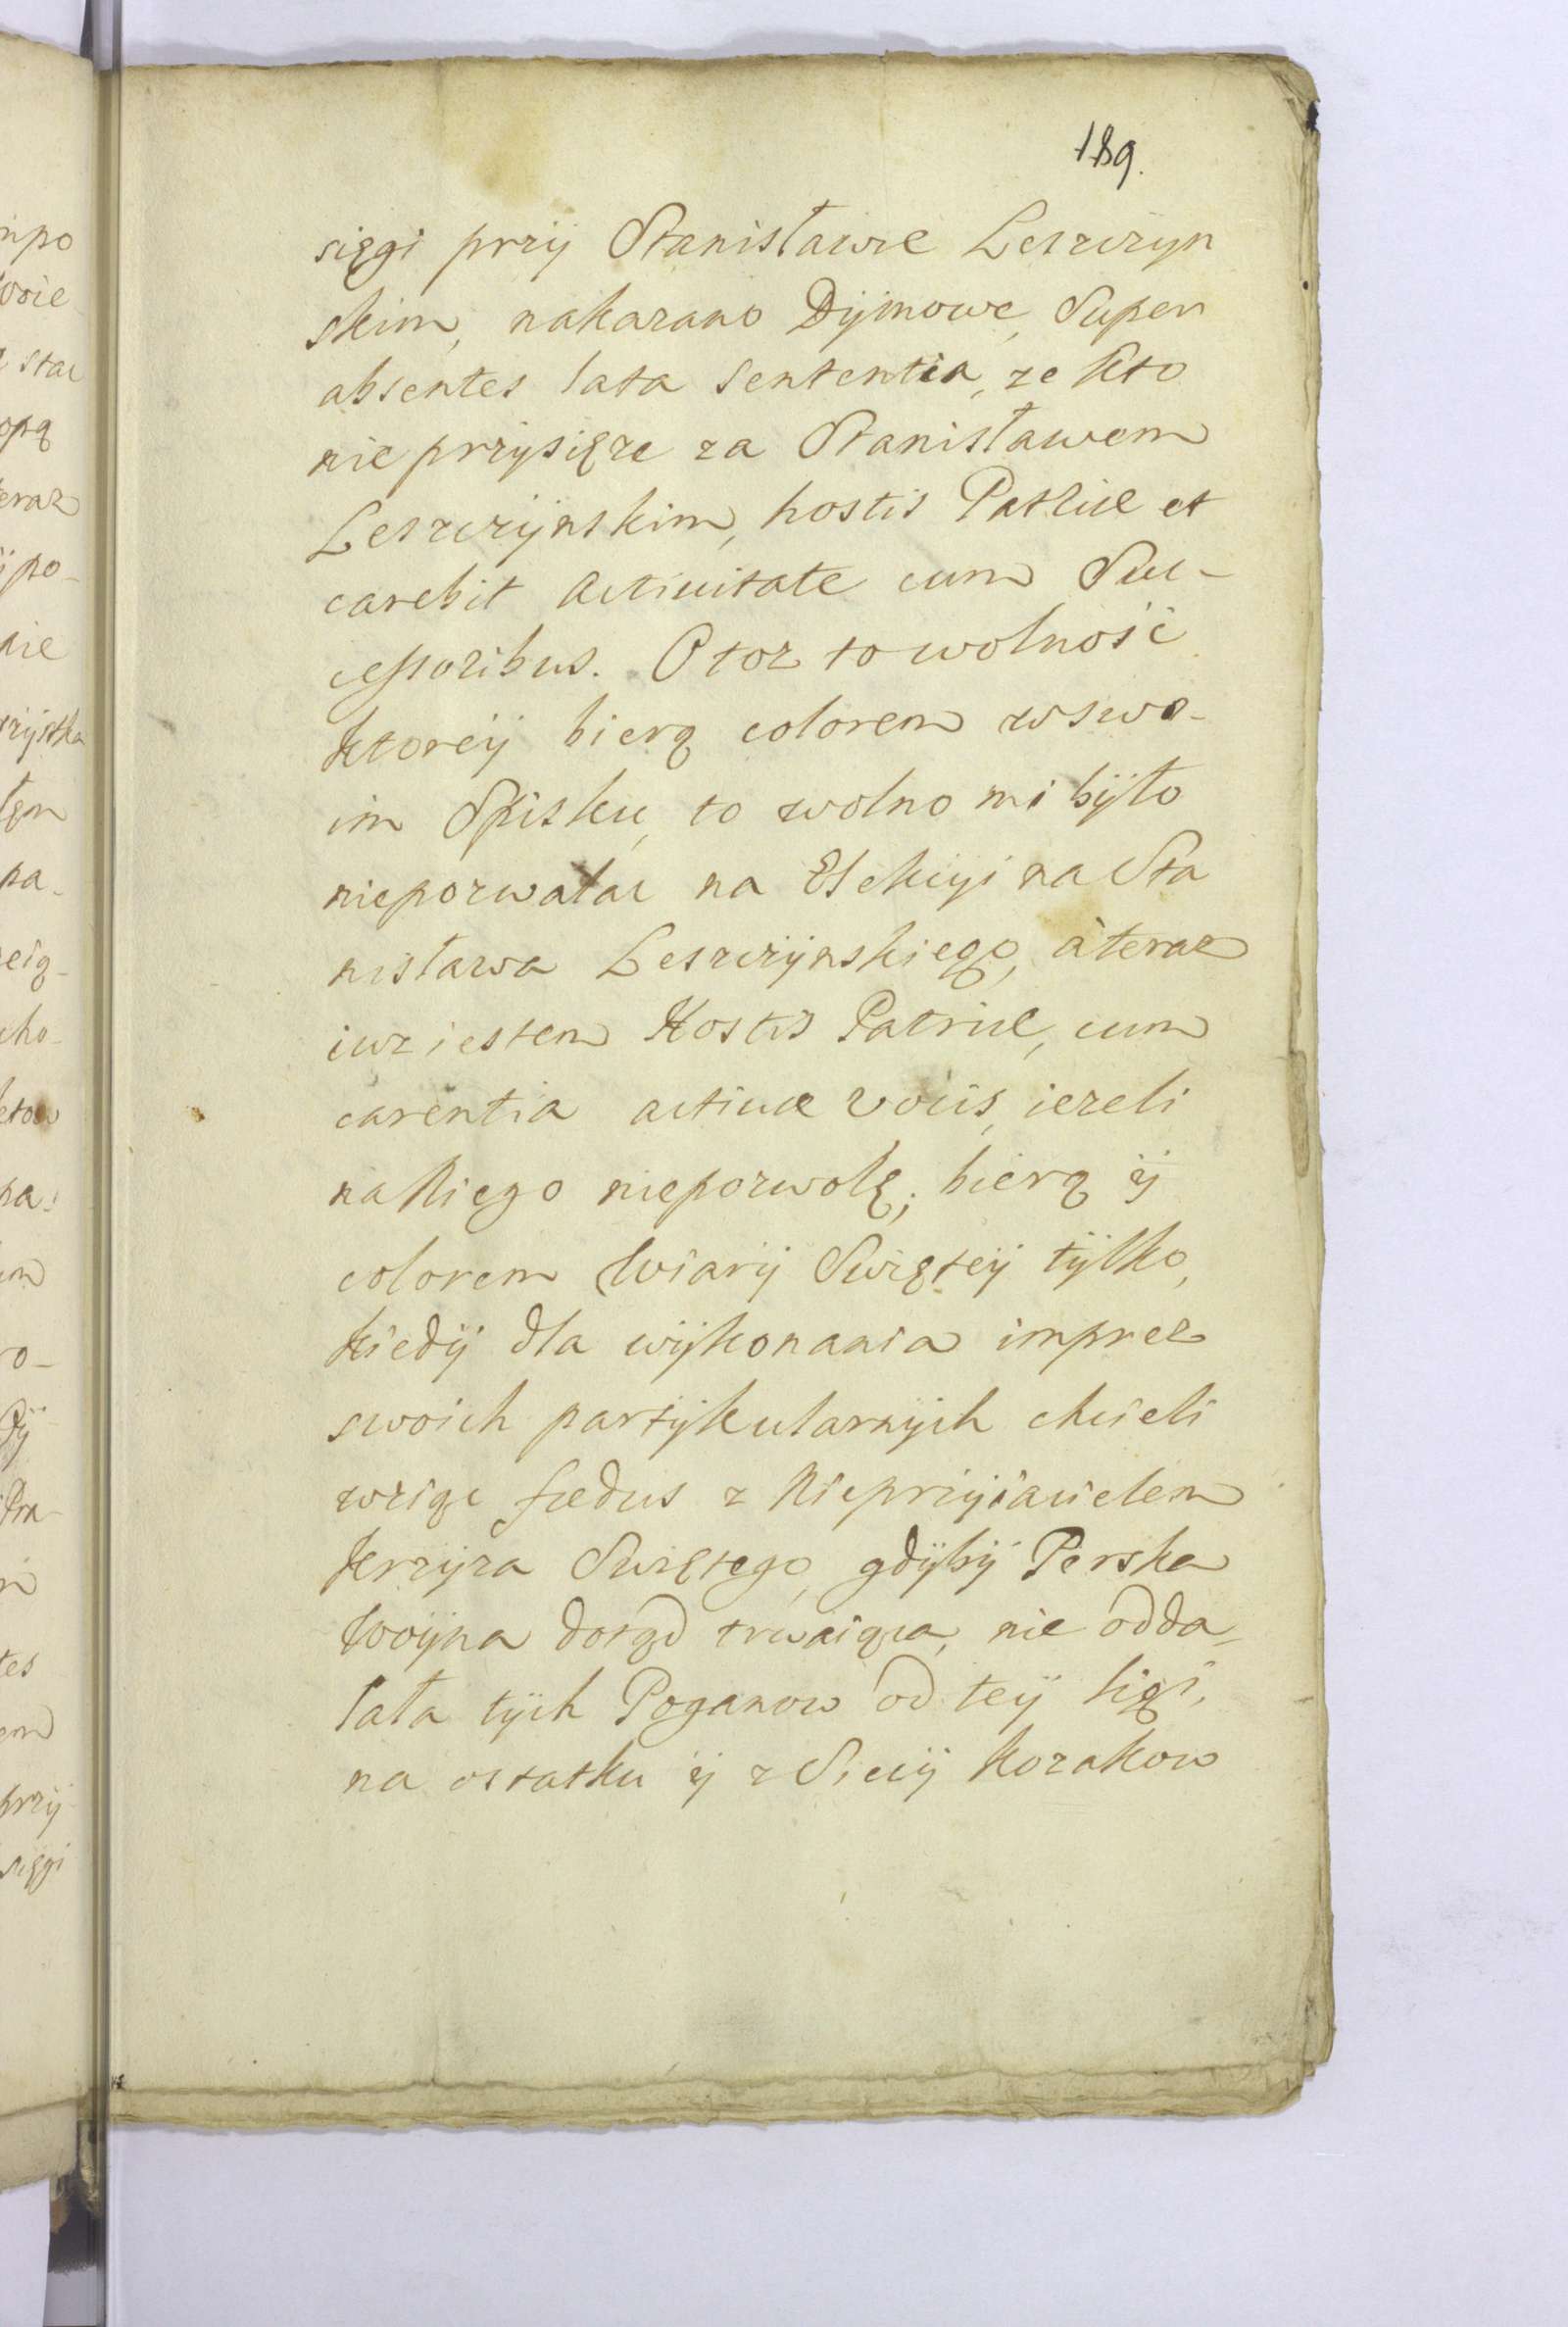 189.
sięgi przÿ Stanisławie Leszczyn
skim, nakazano Dÿmowe, Super
absentes lata Sententia, ze kto
nie przysięze za Stanisławem
Leszczÿnskim, hostis Patriæ et
carebit activitate cum Suc-
cessoribus. Otoz to wolność
ktoreÿ bierą colorem w swo-
im Spisku, to wolno mi bÿło
niepozwalac na Elekcyi na Sta
nisława Leszczÿnskiego, à teraz
iuz iestem Hostis Patriæ, cum
carentia activæ vocis, iezeli
na Niego niepozwolę; bierą ÿ
colorem Wiarÿ Swięteÿ tÿlko,
kiedÿ dla wÿkonania imprez
swoich partÿkularnÿch chcieli
wziąc fœdus z Nieprzÿiacielem
krzÿza Swiętego, gdÿbÿ Perska
Woÿna dotąd trwaiąca, nie odda-
lała tÿch Poganow od teÿ ligi,
na ostatku ÿ z Siczÿ kozakow
npo
woie
stac
opą
teraz
ÿpo-
nie
rzÿstka
łem
na-
eią-
cho-
ktow
na
em
ro-
dÿ
tes
em
przÿ
sięgi